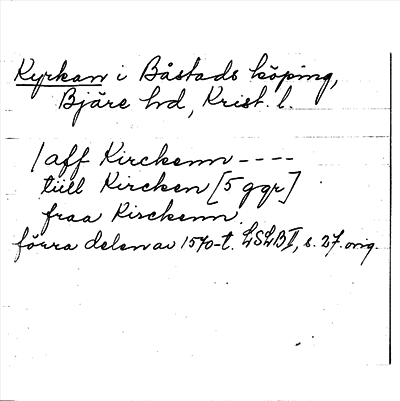 Kyrkan i Båstads köping,
Bjäre hd, Krist. l.
/aff Kirckenn ----
tiill Kircken [5 ggr]
fraa Kirckenn
förra delen av 1570-t. LSLB II, s. 27. orig.